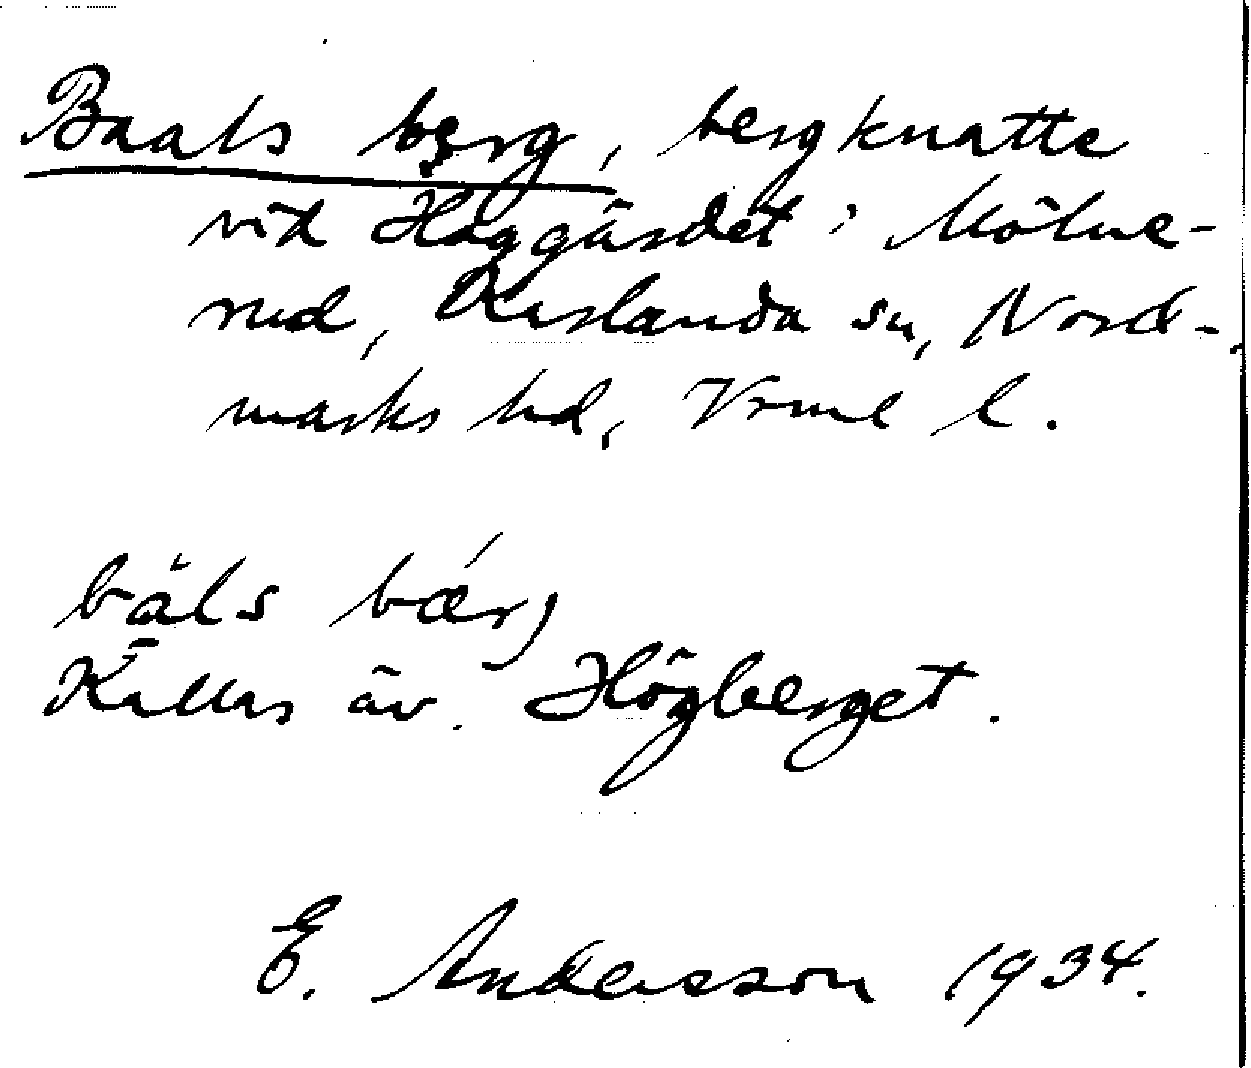 Baals berg, bergknatte
vid Haggärdet i Mölne-
rud, Karlanda sn, Nord-
marks hd, Vrml l.
bals bær,
Kallas äv. Högberget.
E. Andersson 1934.